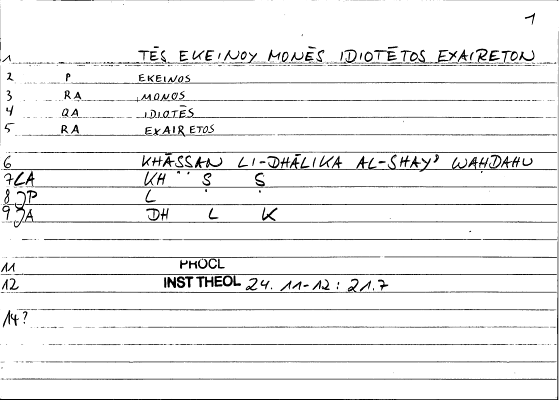 1
1 TĒS EKEINOY MONĒS IDIOTĒTOS EXAIRETON
2 P EKEINOS
3 RA MONOS
4 QA IDIOTĒS
5 RA EXAIRETOS
6 KHĀṢṢAN LI-DHĀLIKA AL-SHAYʾ WAḤDAHU
7 LA KH Ṣ Ṣ
8 JP L
9 JA DH L K
11 PROCL
12 INST THEOL 24. 11-12 : 21.7
14?